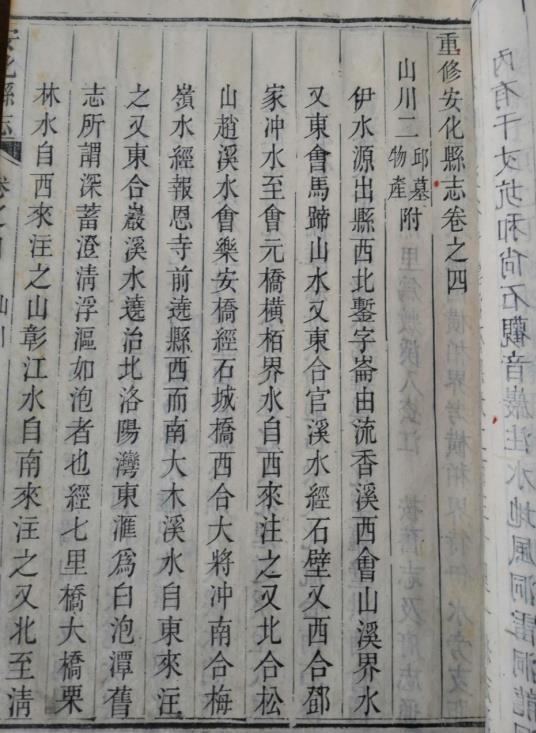 內有千丈坑和尚石觀音巖注水地風洞雷洞龍
重修安化縣志卷之四
山川二 邱墓物產附
伊水源出縣西北鏨字崙由流香溪西會山溪界水
又東會馬蹄山水又東合官溪水經石壁又西合鄧
家冲水至會元橋橫栢界水自西來注之又北合松
山趙溪水會樂安橋經石城橋西合大將冲南合梅
嶺水經報恩寺前遶縣西而南大木溪水自東來注
之又東合巖溪水遶治北洛陽灣東滙爲白泡潭舊
志所謂深蓄澄淸浮漚如泡者也經七里橋大橋栗
林水自西來注之山彰江水自南來注之又北至淸
安化縣志 卷之四 山川